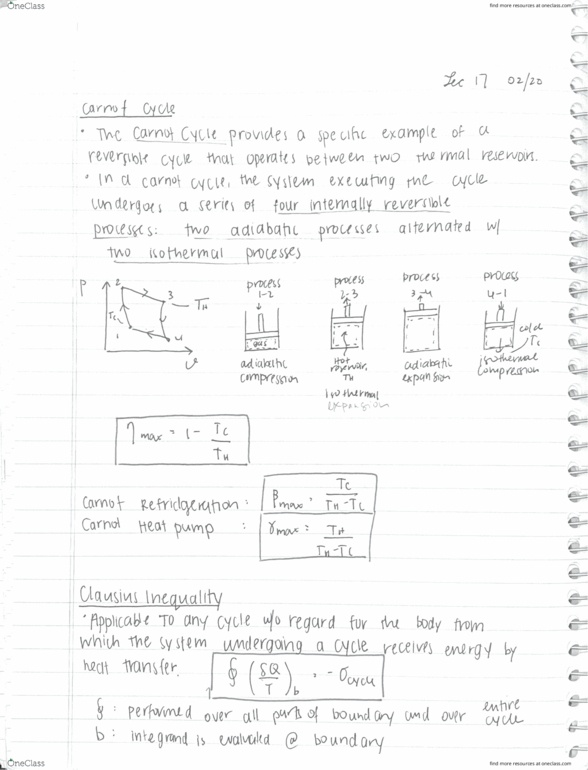 OneClass
find more resources at oneclass.com
Lec 17 02/20
Carnot Cycle
• The Carnot Cycle provides a specific example of a
reversible cycle that operates between two thermal reservoirs.
• In a carnot cycle, the system executing the cycle
undergoes a series of four internally reversible
processes: two adiabatic processes alternated w/
two isothermal processes
P
2
3
TH
Tc
1
4
v
process
1-2
gas
adiabatic
compression
process
2-3
Hot
reservoir,
TH
isothermal
expansion
process
3-4
adiabatic
expansion
process
4-1
cold
Tc
isothermal
compression
η max = 1 - Tc / TH
Carnot Refridgeration : βmax = Tc / TH - Tc
Carnot Heat pump : γmax = TH / TH - Tc
Clausius Inequality
• Applicable TO any cycle w/o regard for the body from
which the system undergoing a cycle receives energy by
heat transfer. ∮ (δQ / T)b = - σcycle
∮ : performed over all parts of boundary and over entire cycle
b : integrand is evaluated @ boundary
OneClass
find more resources at oneclass.com